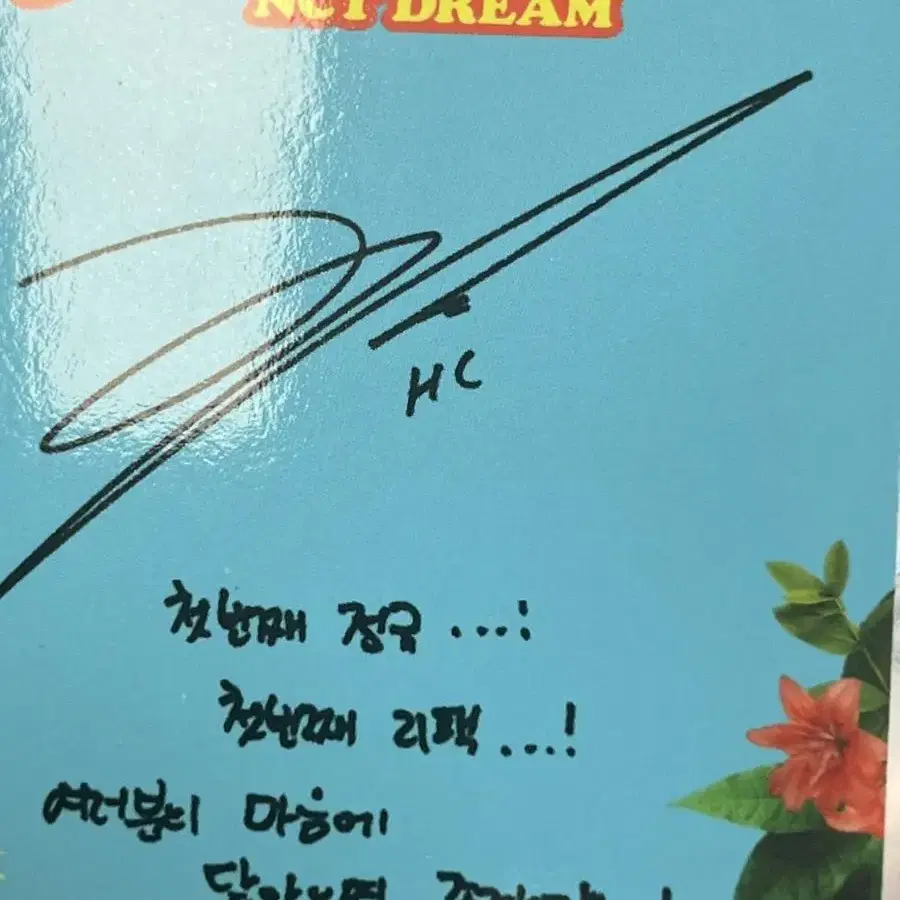 NCT DREAM
HC
첫번째 정규...!
첫번째 리팩...!
여러분의 마음에